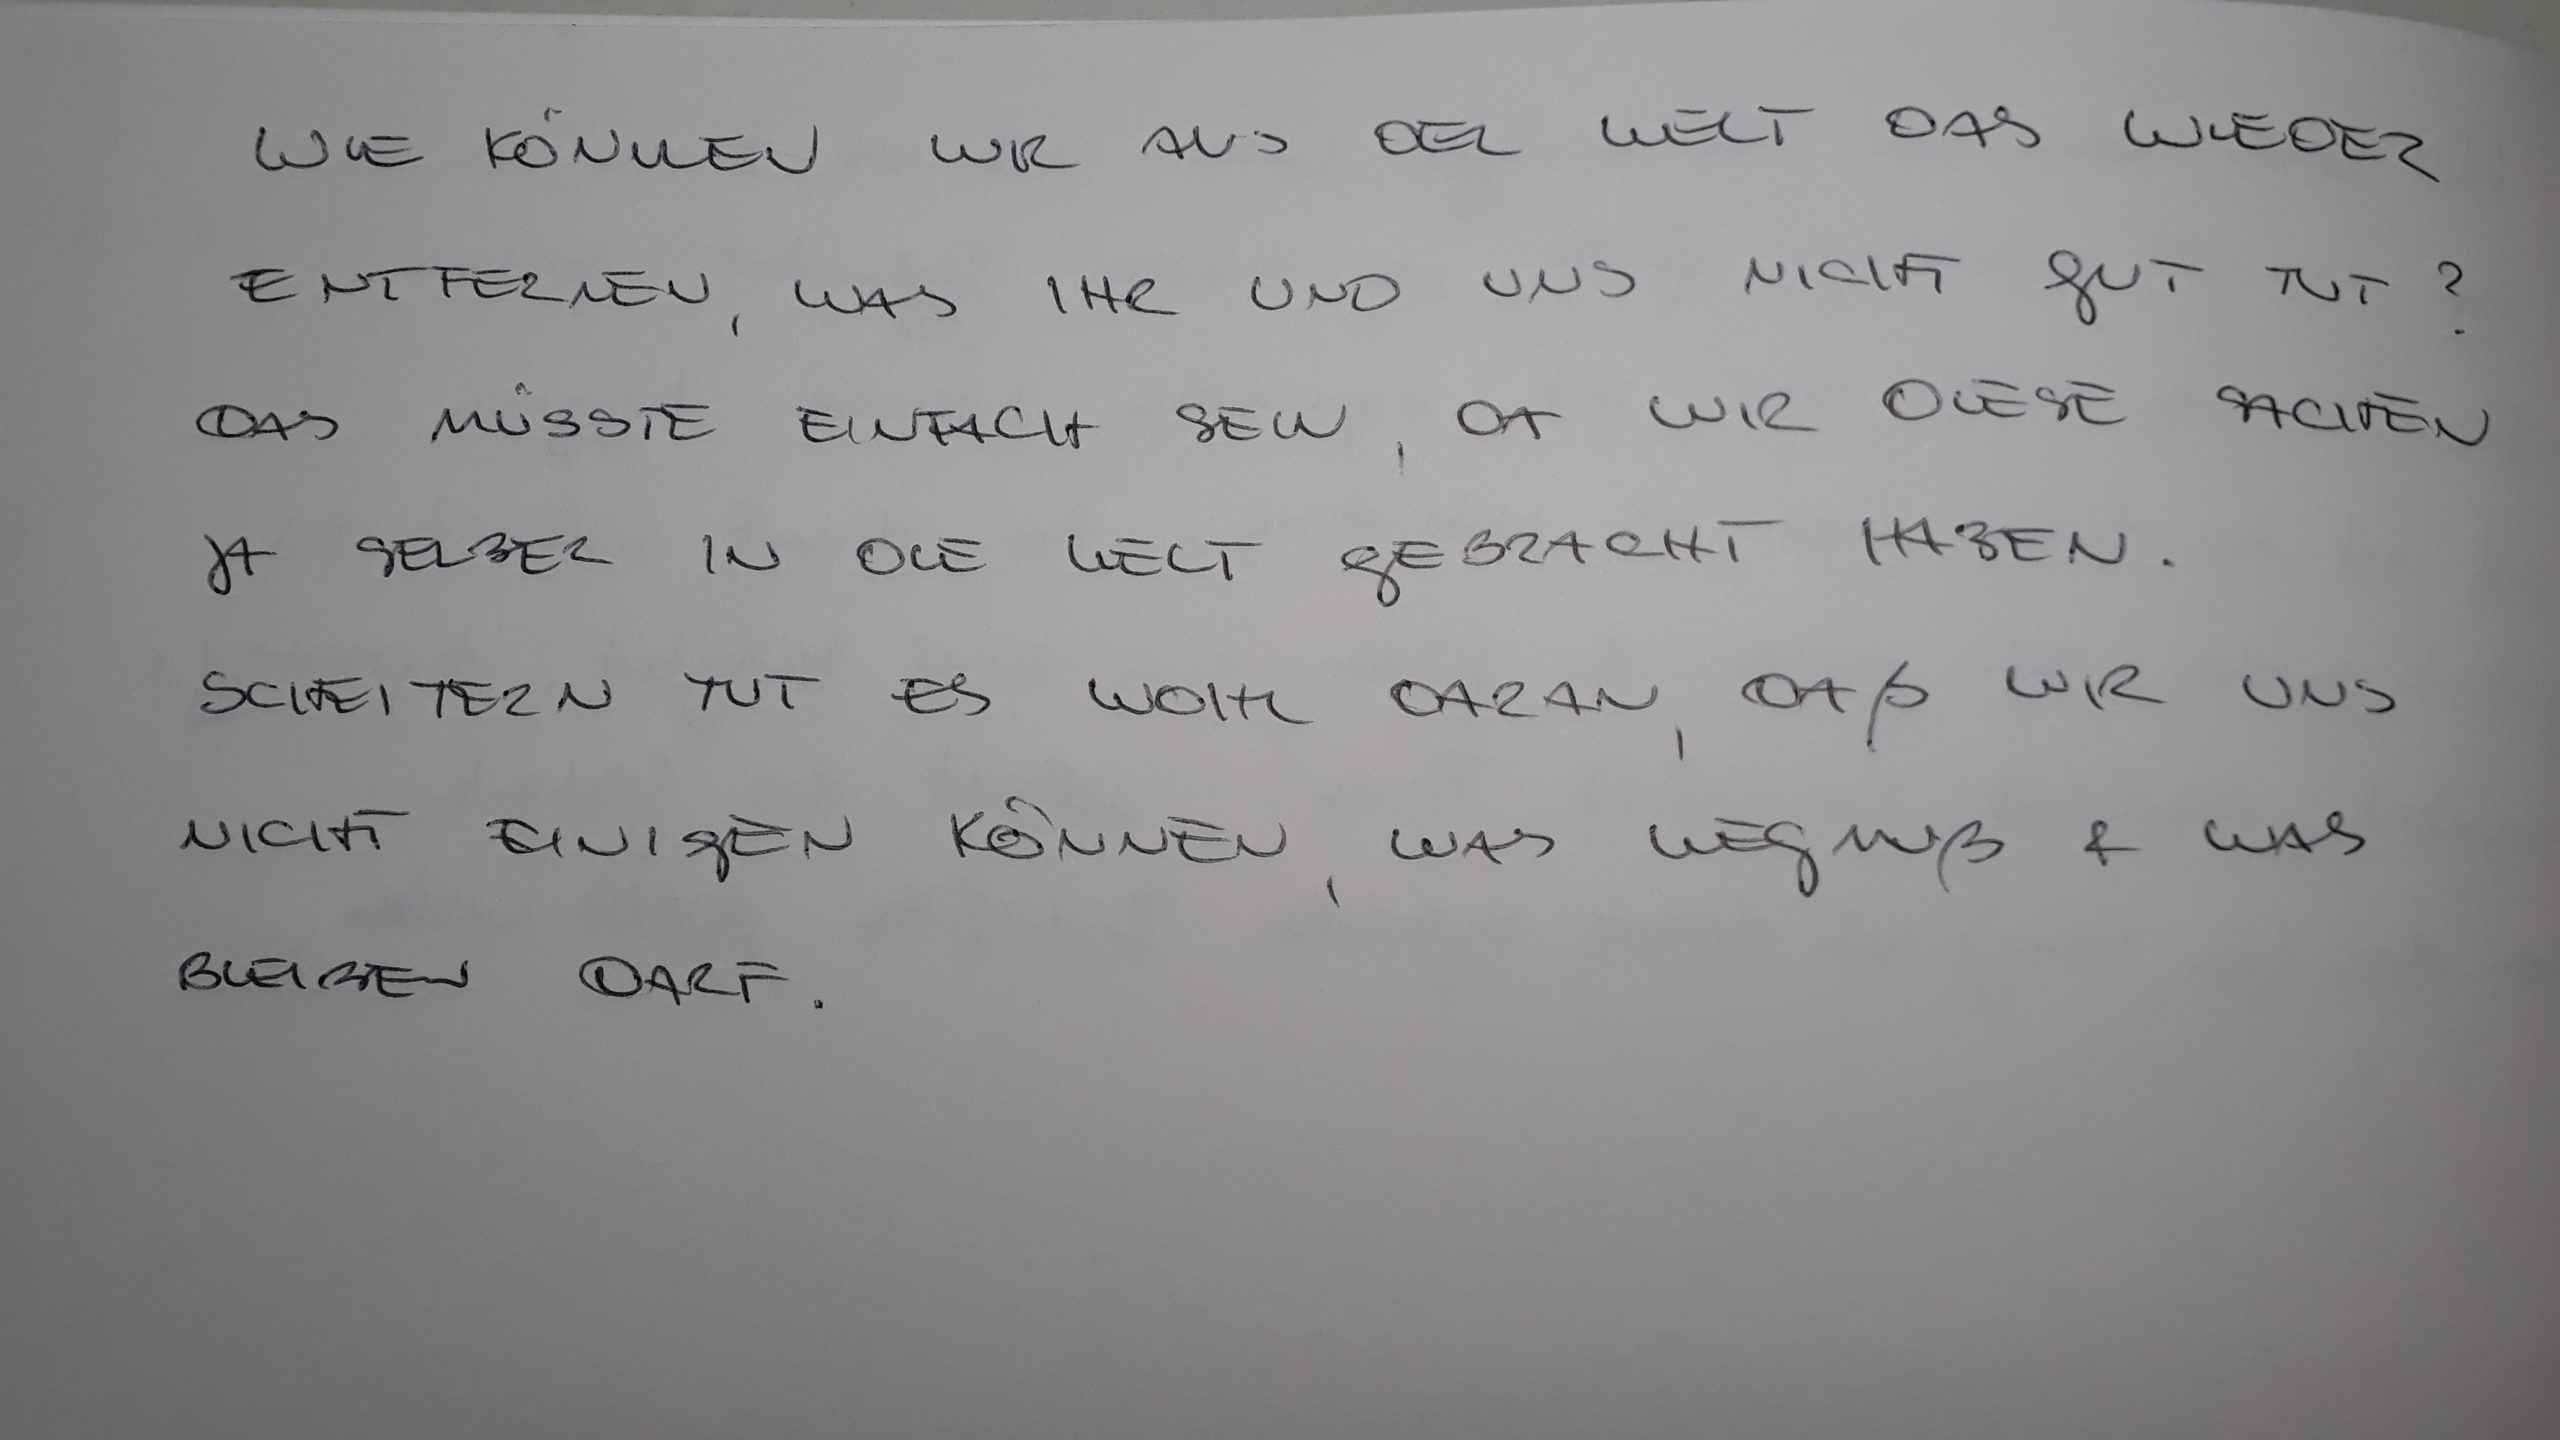 WIE KÖNNEN WIR AUS DER WELT DAS WIEDER
ENTFERNEN, WAS IHR UND UNS NICHT GUT TUT?
DAS MÜSSTE EINFACH SEIN, DA WIR DIESE SACHEN
JA SELBER IN DIE WELT GEBRACHT HABEN.
SCHEITERN TUT ES WOHL DARAN, DAß WIR UNS
NICHT EINIGEN KÖNNEN, WAS WEGMUß & WAS
BLEIBEN DARF.